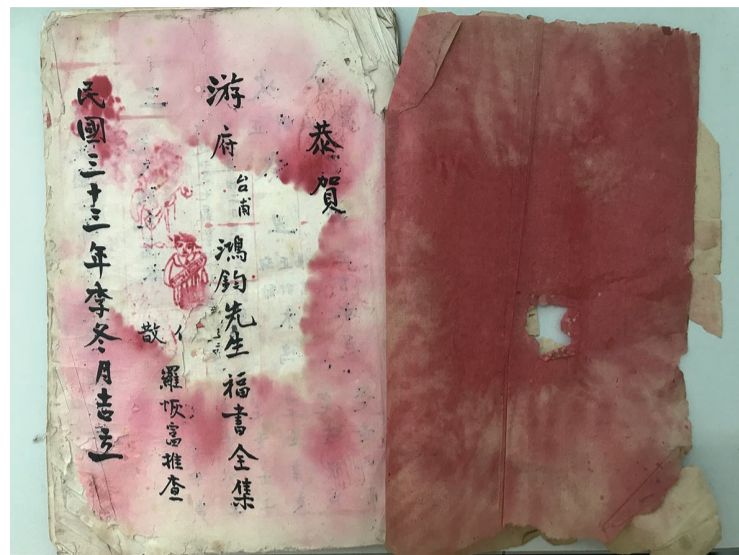 恭賀
游府台甫鴻鈞先生福書全集
散人
羅恢富推查
民國三十三年季冬月吉立